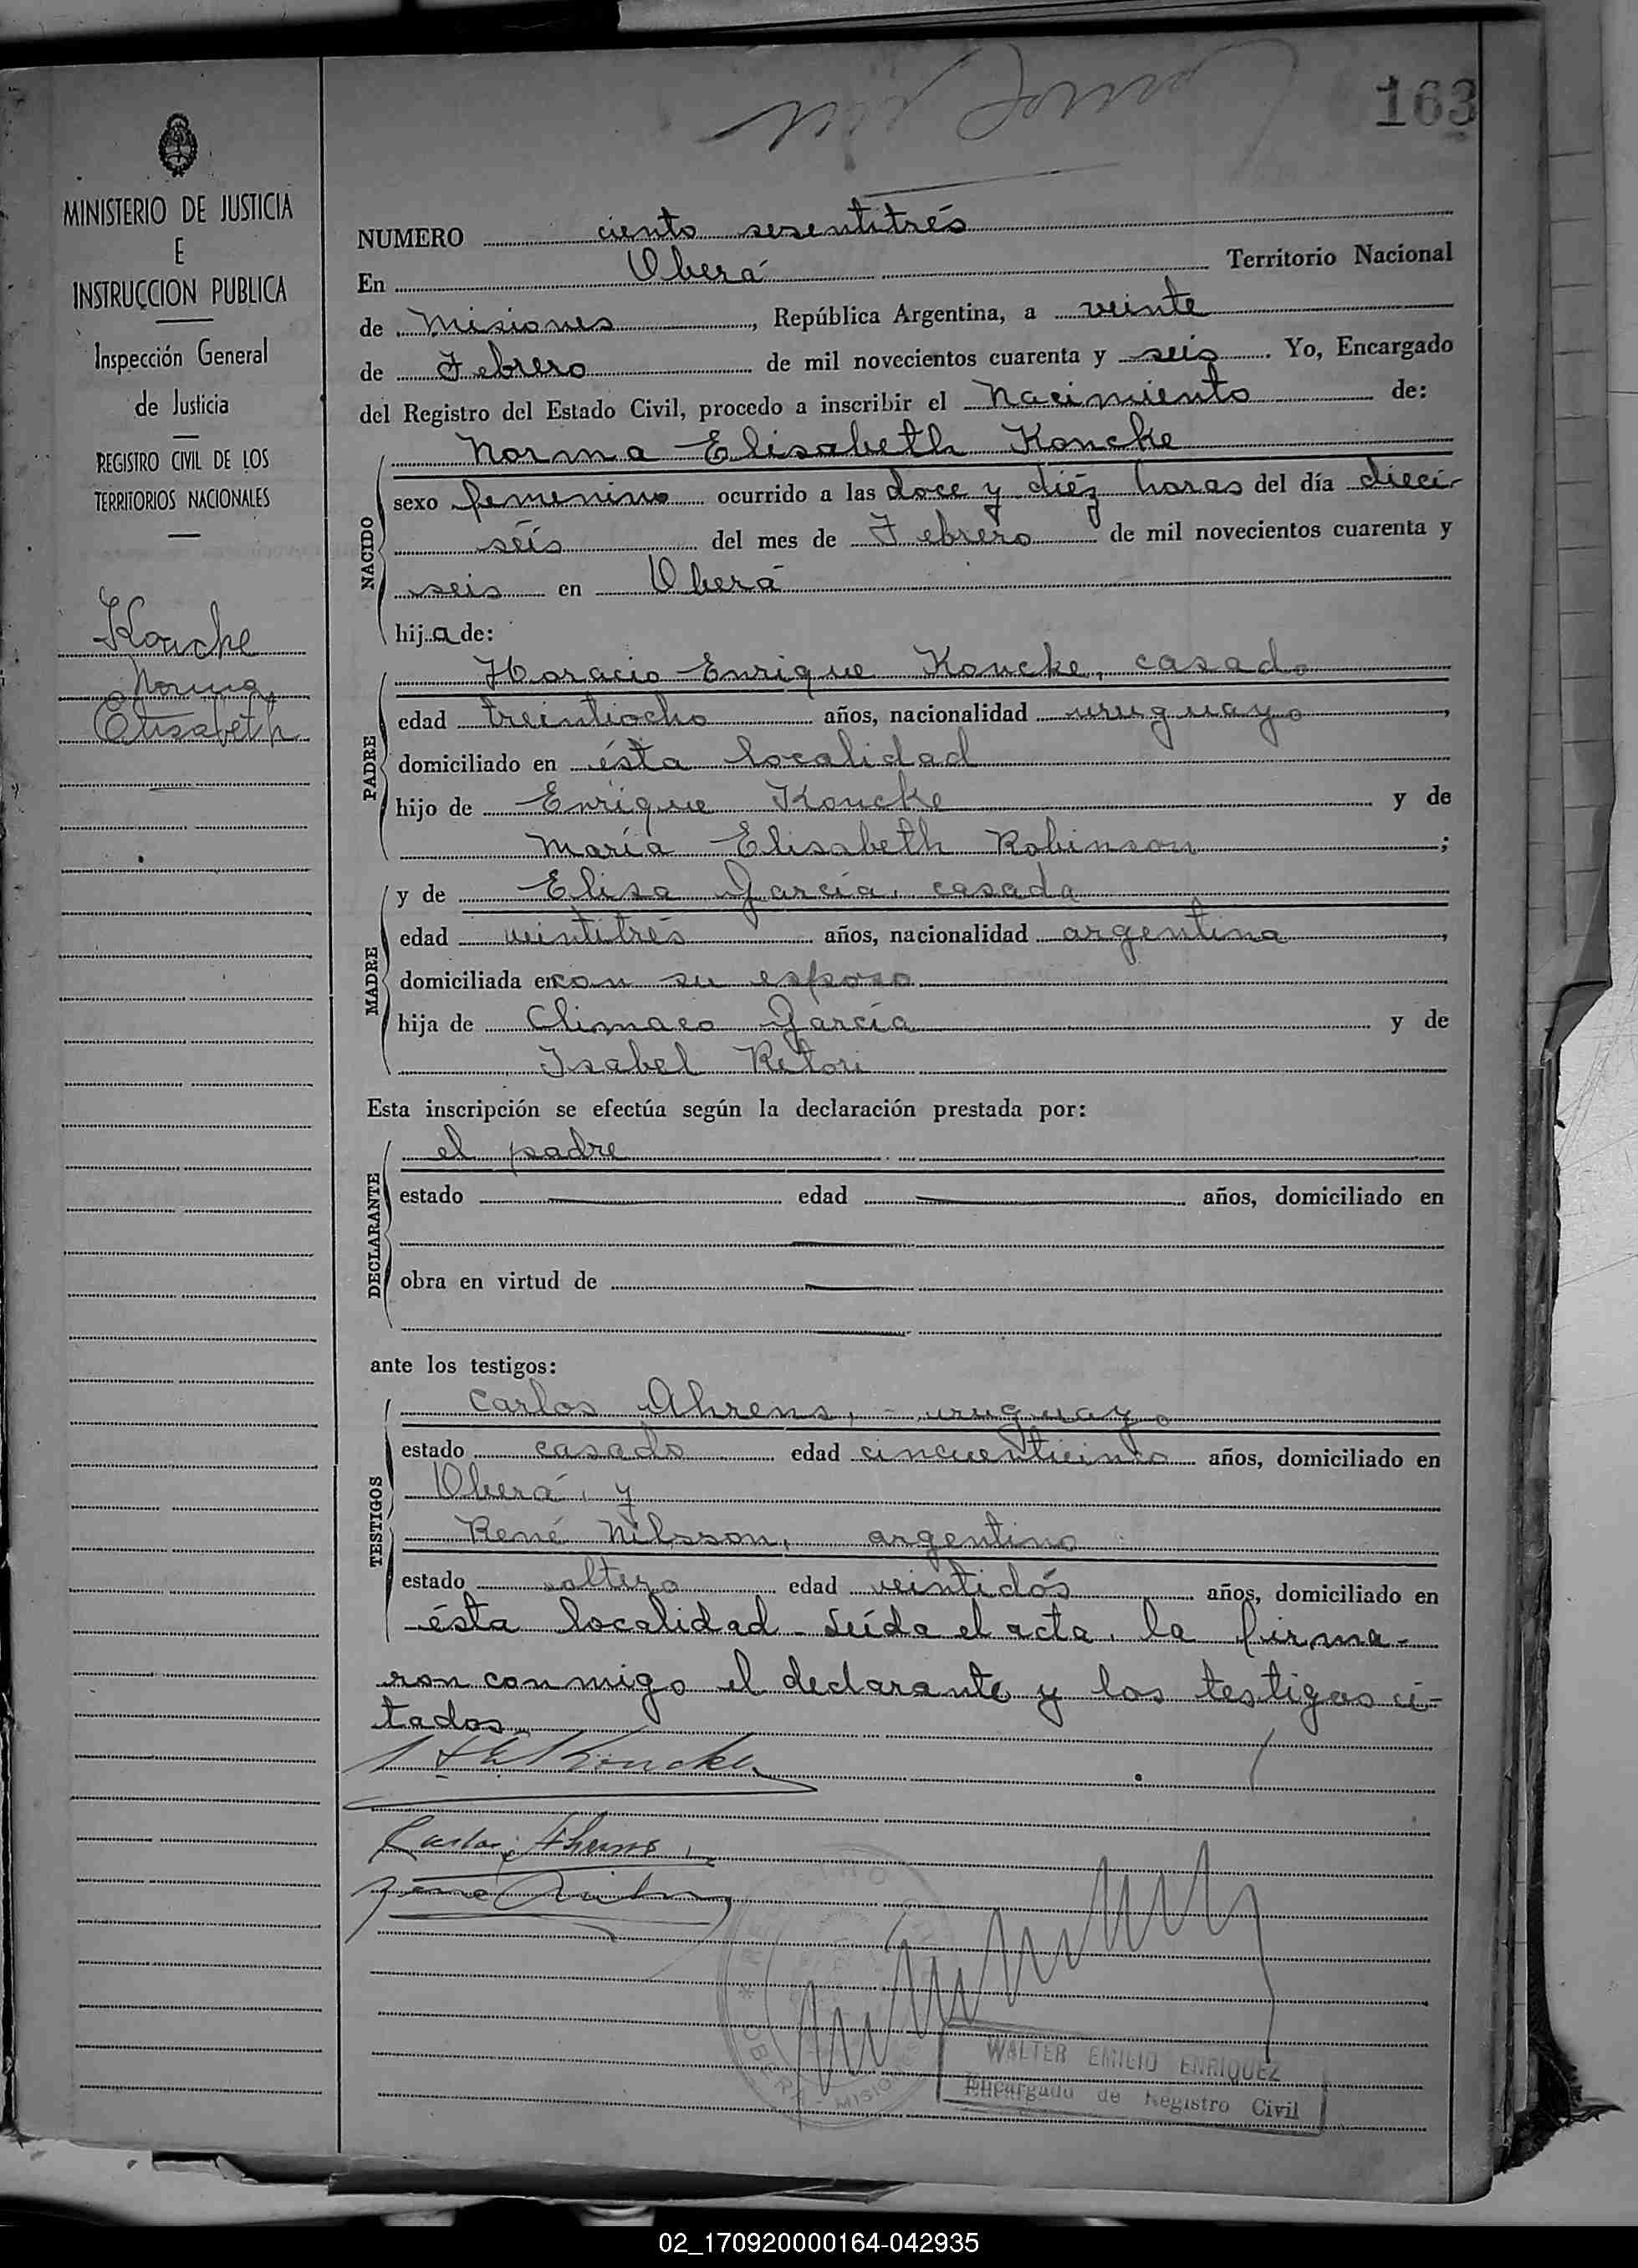 163
MINISTERIO DE JUSTICIA
E
INSTRUCCION PUBLICA
Inspección General
de Justicia
REGISTRO CIVIL DE LOS
TERRITORIOS NACIONALES
Koncke
Norma
Elisabeth
NUMERO ciento sesentitrés
En Oberá Territorio Nacional
de Misiones, República Argentina, a veinte
de Febrero de mil novecientos cuarenta y seis. Yo, Encargado
del Registro del Estado Civil, procedo a inscribir el Nacimiento de:
NACIDO
Norma Elisabeth Koncke
sexo femenino ocurrido a las doce y diéz horas del día dieci-
seis del mes de Febrero de mil novecientos cuarenta y
seis en Oberá
hija de:
PADRE
Horacio Enrique Koncke, casado
edad treintiocho años, nacionalidad uruguayo,
domiciliado en ésta localidad
hijo de Enrique Koncke y de
María Elisabeth Robinson;
MADRE
y de Elisa García, casada
edad veintitrés años, nacionalidad argentina,
domiciliada en con su esposo
hija de Climaco García y de
Isabel Retori
Esta inscripción se efectúa según la declaración prestada por:
DECLARANTE
el padre
estado edad años, domiciliado en
obra en virtud de
ante los testigos:
TESTIGOS
Carlos Ahrens, - uruguayo
estado casado edad cincuenticinco años, domiciliado en
Oberá, y
René Nilsson, argentino
estado soltero edad veintidós años, domiciliado en
ésta localidad - Leída el acta, la firma-
ron conmigo el declarante y los testigos ci-
tados
H E Koncke
Carlos Ahrens
OBERA - MISIONES
WALTER EMILIO ENRIQUEZ
Encargado de Registro Civil
02_170920000164-042935